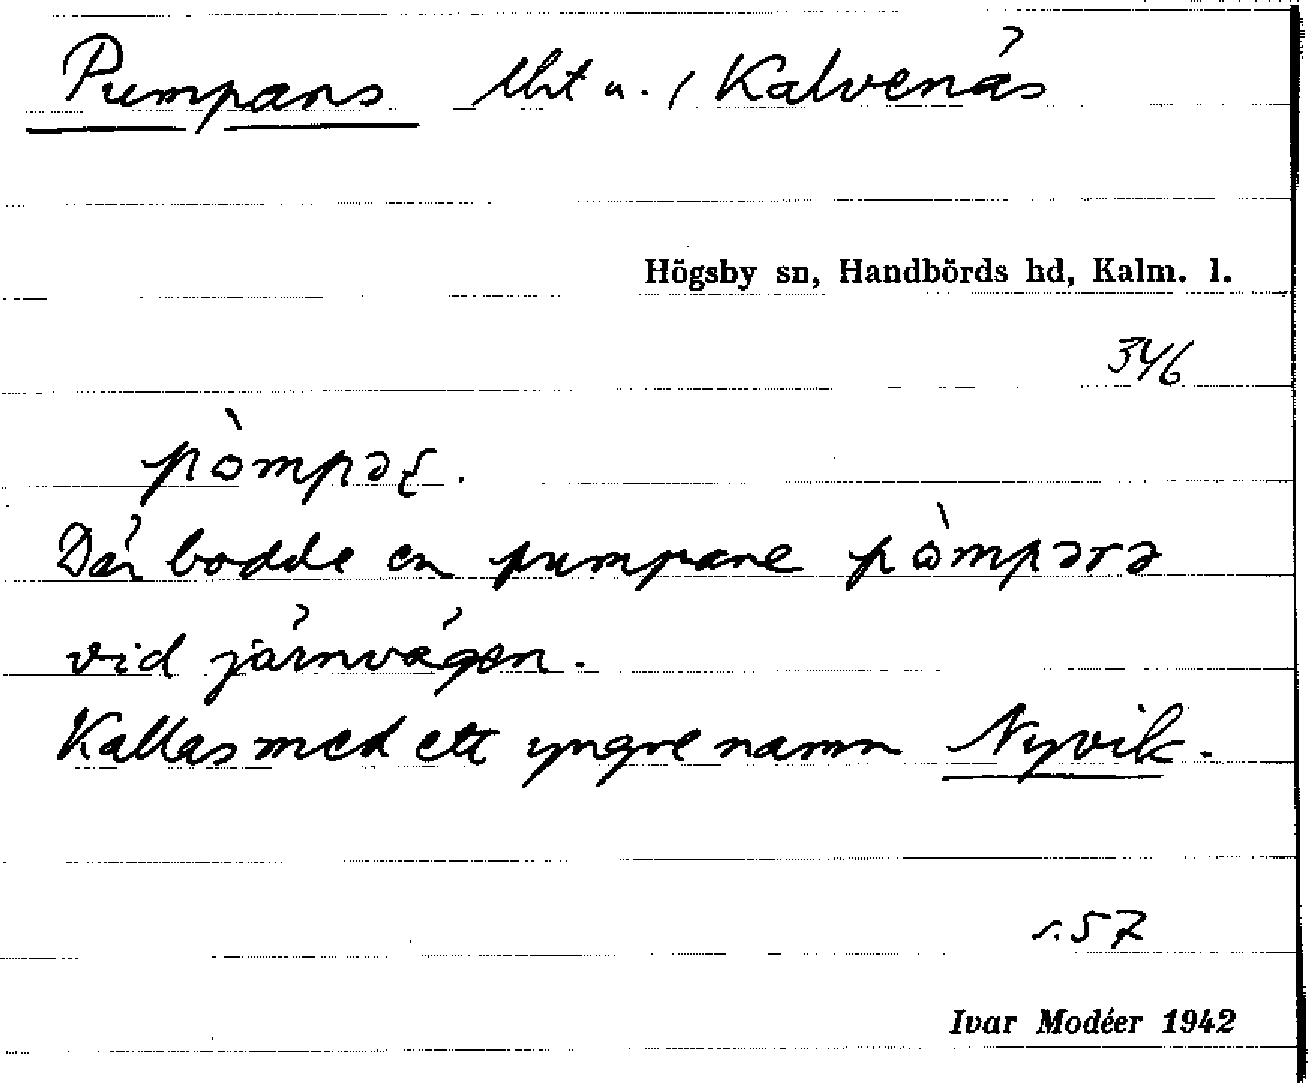 Pumpans lht u. / Kalvenäs
Högsby sn, Handbörds hd, Kalm. l.
346
Där bodde en pumpare pòmpərə
vid järnvägen.
Kallas med ett yngre namn Nyvik.
s. 57
Ivar Modéer 1942